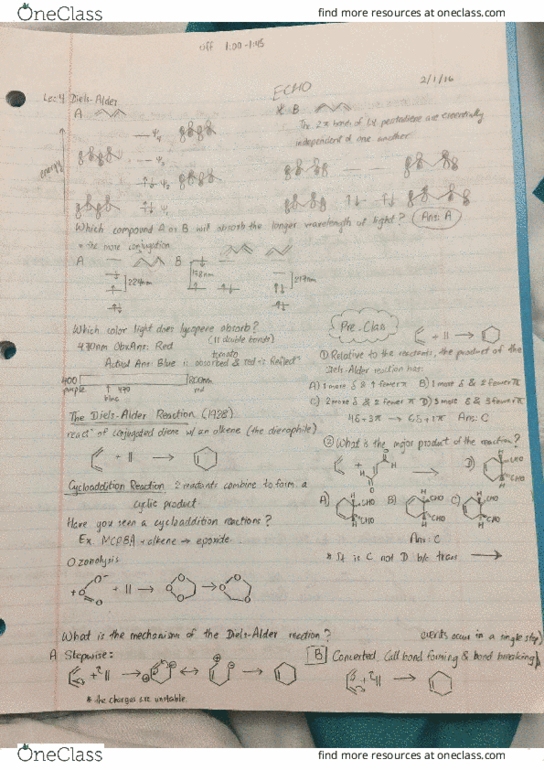 OneClass
find more resources at oneclass.com
OFF 1:00-1:45
2/1/16
ECHO
Lec 4 Diels-Alder
A
* B
The 2π bonds of 1,4 pentadiene are essentially
independent of one another.
energy
Ψ4
Ψ3
Ψ2
Ψ1
Which compound A or B will absorb the longer wavelength of light? Ans: A
* the more conjugation
A B
224nm 178nm 217nm
Which color light does lycopene absorb?
(11 double bonds)
470nm Obx Ans: Red
Actual Ans: Blue is absorbed & red is Reflect
400 800nm
purple 470 red
blue
The Diels-Alder Reaction (1928)
react° of conjugated diene w/ an alkene (the dienophile)
Cycloaddition Reaction: 2 reactants combine to form a
cyclic product
Have you seen a cycloaddition reactions?
Ex. MCPBA + alkene → epoxide
Ozonolysis
Pre-Class
① Relative to the reactants, the product of the
Diels-Alder reaction has:
A) 1 more δ & 1 fewer π B) 1 more δ & 2 fewer π
C) 2 more δ & 2 fewer π D) 3 more δ & 3 fewer π
4δ+3π → 6δ+1π Ans: C
② What is the major product of the reaction?
D) CHO
CHO
A) CHO B) CHO C) CHO
CHO CHO CHO
Ans: C
* It is C not D b/c trans
What is the mechanism of the Diels-Alder reaction?
events occur in a single step)
A Stepwise:
B Concerted, (all bond forming & bond breaking
* the charges are unstable.
OneClass
find more resources at oneclass.com